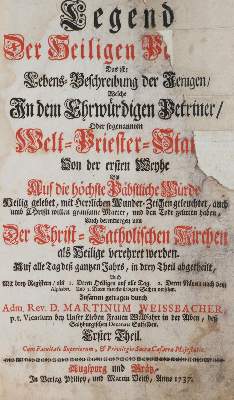 Legend
Der Heiligen
Das ist:
Lebens-Beschreibung der Jenigen/
Welche
In dem Ehrwürdigen Petriner/
Oder sogenannten
Welt-Priester-Stan
Von der ersten Weyhe
Biß
Auf die höchste Päbstliche Würde
Heilig gelebet, mit Herrlichen Wunder-Zeichen geleuchtet, auch
umb Christi willen grausame Marter, und den Tod gelitten haben,
Auch derentwegen von
Der Christ-Catholischen Kirchen
als Heilige verehret werden.
Auf alle Tag des gantzen Jahrs, in drey Theil abgetheilt,
Und
Mit drey Registern, als 1. Deren Heiligen auf alle Tag. 2. Deren Namen nach dem
Alphabet. Und 3. Deren merckwürdigen Sachen versehen.
Zusamen getragen durch
Adm. Rev. D. MARTINUM WEISSBACHER,
p.t. Vicarium bey Unser Lieben Frauen in der
Erster Theil.
Cum Facultate Superiorum, & Privilegio Sacræ Cæsareæ Majestatis.
Augspurg und Grätz,
In Verlag Philipp, und Martin Veith, Anno 1737.